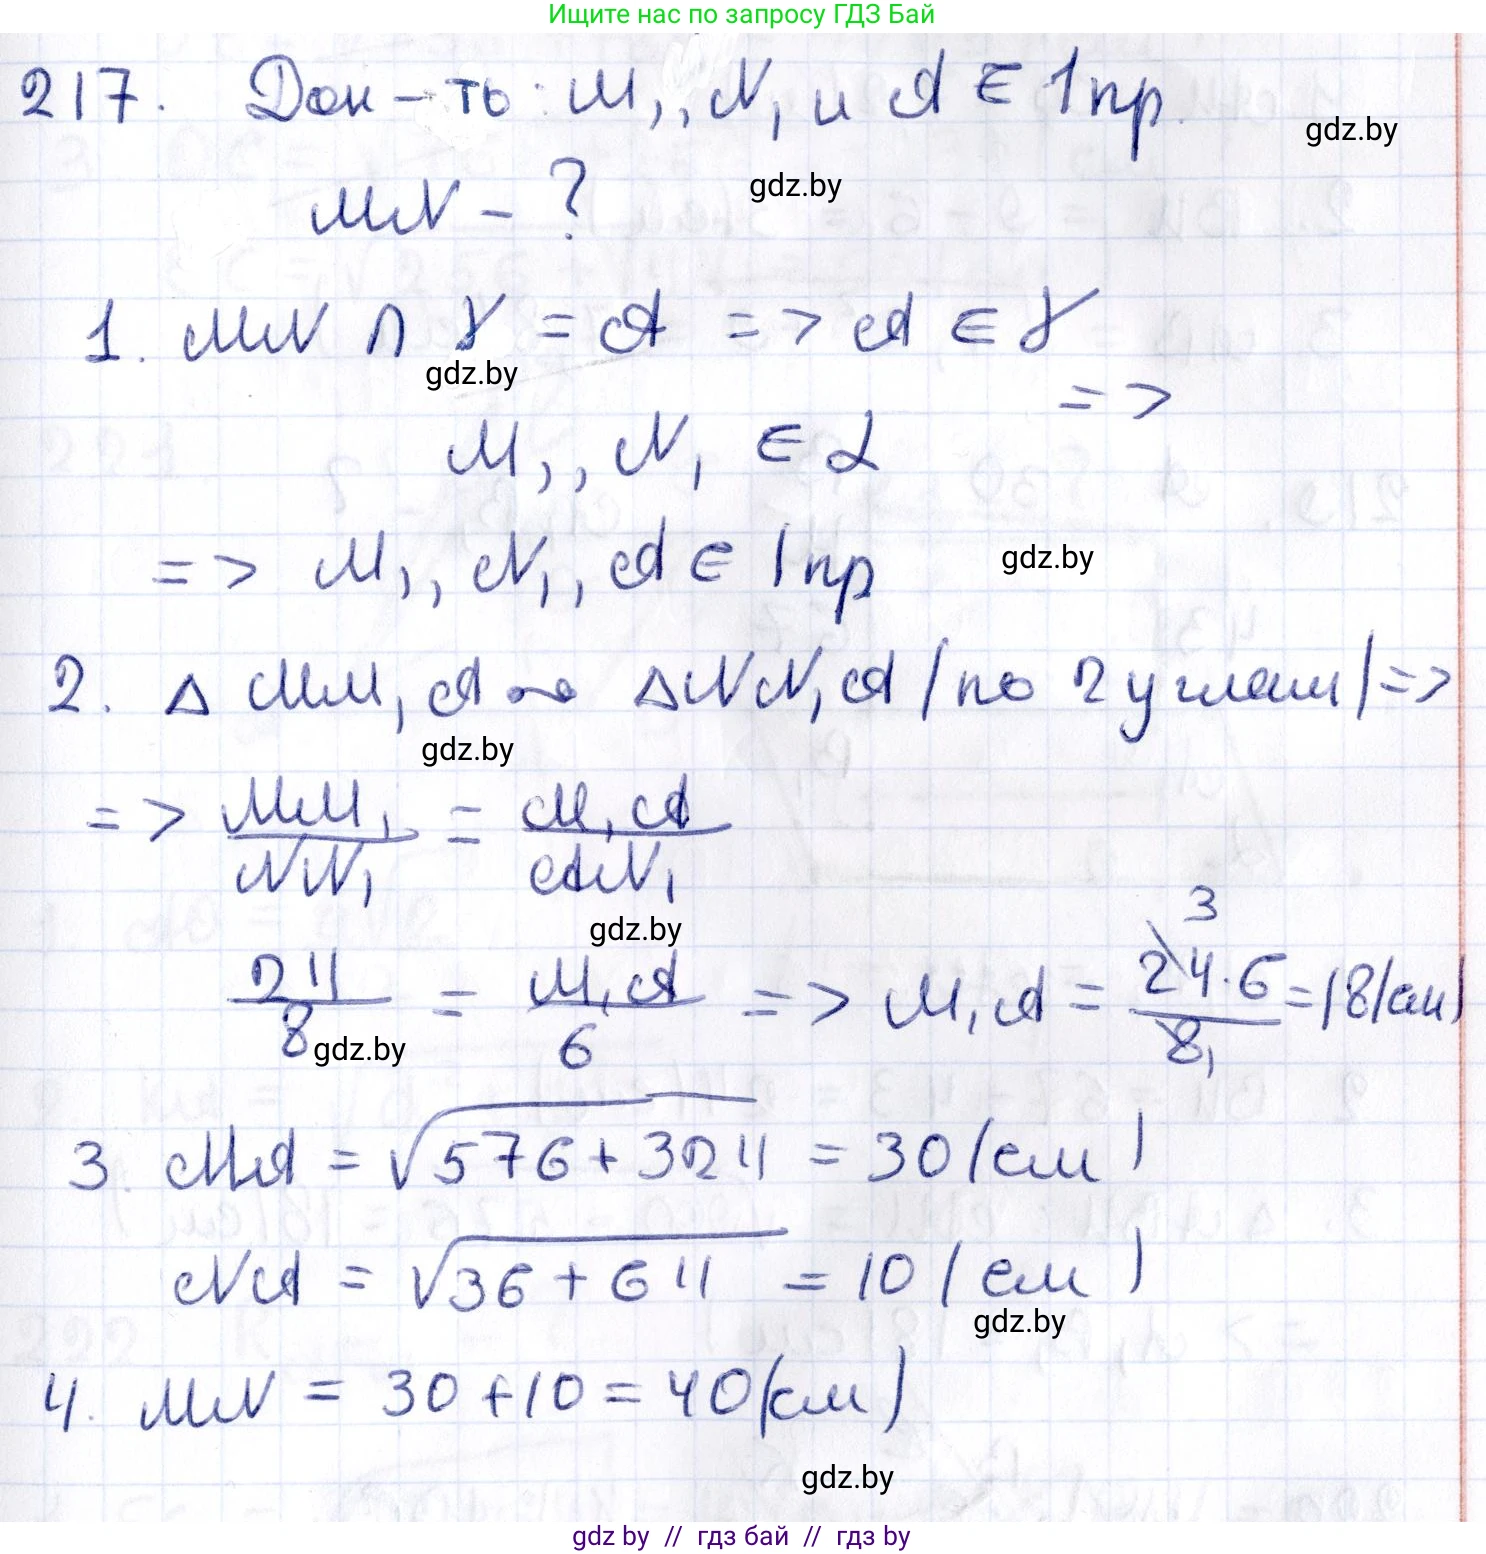 Ищите нас по запросу ГДЗ Бай
217. Док-ть: M₁, N₁ и A ∈ 1 пр.
gdz.by
MN - ?
gdz.by
1. MN ∩ γ = A => A ∈ γ
gdz.by
=>
M₁, N₁ ∈ α
=> M₁, N₁, A ∈ 1 пр
gdz.by
2. Δ MM₁A ∾ ΔNN₁A (по 2 углам) =>
gdz.by
=> MM₁/NN₁ = M₁A/AN₁
gdz.by
24/8 = M₁A/6 => M₁A = 24·6/8 = 18 (см)
3
1
gdz.by
3. MA = √576+324 = 30 (см)
NA = √36+64 = 10 (см)
gdz.by
4. MN = 30+10 = 40 (см)
gdz.by
gdz by // гдз бай // гдз by